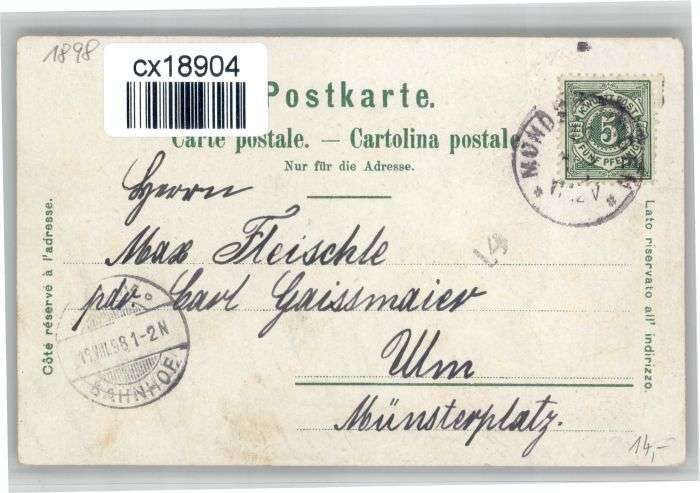 1898
cx18904
Postkarte.
Carte postale. — Cartolina postale
Nur für die Adresse.
5
FÜNF PFENNIG
Côté réservé à l'adresse.
Herrn
Max Fleischle
pdr. Carl Gaissmaier
Ulm
Münsterplatz.
98 1-2N
BAHNHOF.
L4
Lato riservato all' indirizzo.
14,-